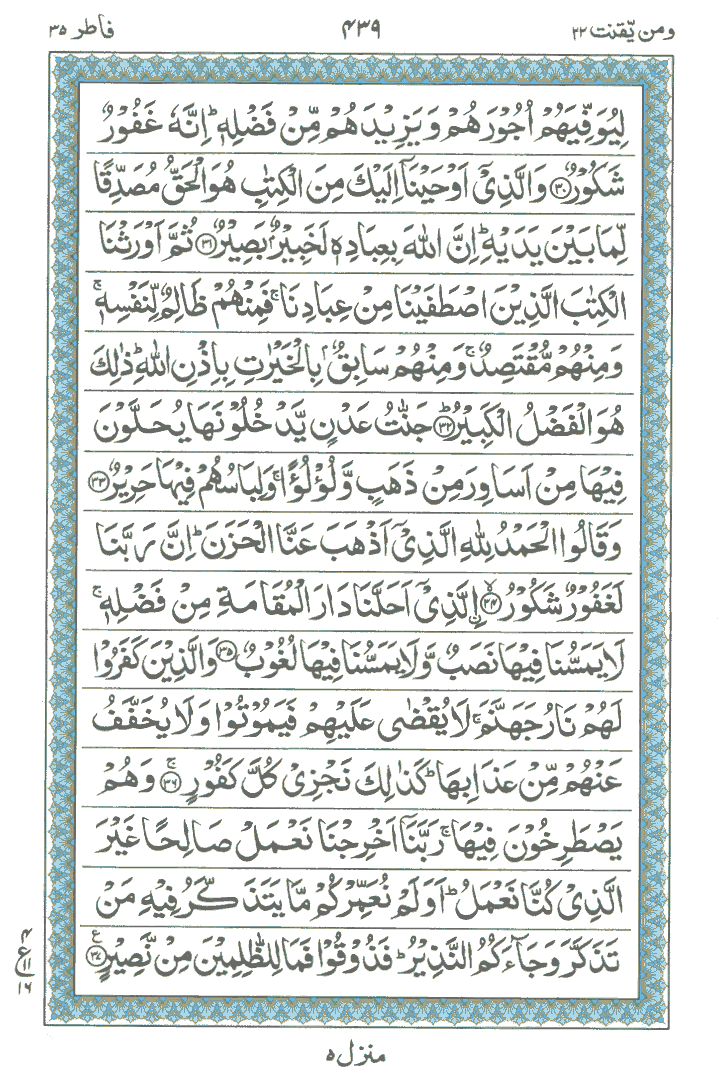 ومن یّقنت ۲۲ ۴۳۹ فاطر ۳۵
لِيُوَفِّيَهُمْ اُجُوْرَهُمْ وَيَزِيْدَهُمْ مِّنْ فَضْلِهٖ ؕ اِنَّهٗ غَفُوْرٌ
شَكُوْرٌ ﴿۳۰﴾ وَالَّذِیْۤ اَوْحَيْنَاۤ اِلَيْكَ مِنَ الْكِتٰبِ هُوَ الْحَقُّ مُصَدِّقًا
لِّمَا بَيْنَ يَدَيْهِ ؕ اِنَّ اللّٰهَ بِعِبَادِهٖ لَخَبِيْرٌۢ بَصِيْرٌ ﴿۳۱﴾ ثُمَّ اَوْرَثْنَا
الْكِتٰبَ الَّذِيْنَ اصْطَفَيْنَا مِنْ عِبَادِنَا ۚ فَمِنْهُمْ ظَالِمٌ لِّنَفْسِهٖ ۚ
وَمِنْهُمْ مُّقْتَصِدٌ ۚ وَمِنْهُمْ سَابِقٌۢ بِالْخَيْرٰتِ بِاِذْنِ اللّٰهِ ؕ ذٰلِكَ
هُوَ الْفَضْلُ الْكَبِيْرُ ﴿۳۲﴾ؕ جَنّٰتُ عَدْنٍ يَّدْخُلُوْنَهَا يُحَلَّوْنَ
فِيْهَا مِنْ اَسَاوِرَ مِنْ ذَهَبٍ وَّلُؤْلُؤًا ۚ وَلِبَاسُهُمْ فِيْهَا حَرِيْرٌ ﴿۳۳﴾
وَقَالُوا الْحَمْدُ لِلّٰهِ الَّذِیْۤ اَذْهَبَ عَنَّا الْحَزَنَ ؕ اِنَّ رَبَّنَا
لَغَفُوْرٌ شَكُوْرُ ﴿۳۴﴾ۙ ۟اِ۟لَّذِیْۤ اَحَلَّنَا دَارَ الْمُقَامَةِ مِنْ فَضْلِهٖ ۚ
لَا يَمَسُّنَا فِيْهَا نَصَبٌ وَّلَا يَمَسُّنَا فِيْهَا لُغُوْبٌ ﴿۳۵﴾ وَالَّذِيْنَ كَفَرُوْا
لَهُمْ نَارُ جَهَنَّمَ ۚ لَا يُقْضٰى عَلَيْهِمْ فَيَمُوْتُوْا وَلَا يُخَفَّفُ
عَنْهُمْ مِّنْ عَذَابِهَا ؕ كَذٰلِكَ نَجْزِیْ كُلَّ كَفُوْرٍ ﴿۳۶﴾ۚ وَهُمْ
يَصْطَرِخُوْنَ فِيْهَا ۚ رَبَّنَاۤ اَخْرِجْنَا نَعْمَلْ صَالِحًا غَيْرَ
الَّذِیْ كُنَّا نَعْمَلُ ؕ اَوَلَمْ نُعَمِّرْكُمْ مَّا يَتَذَكَّرُ فِيْهِ مَنْ
تَذَكَّرَ وَجَآءَكُمُ النَّذِيْرُ ؕ فَذُوْقُوْا فَمَا لِلظّٰلِمِيْنَ مِنْ نَّصِيْرٍ ﴿۳۷﴾ع
۴
ع ۱۱
۱۶
منزل ۵